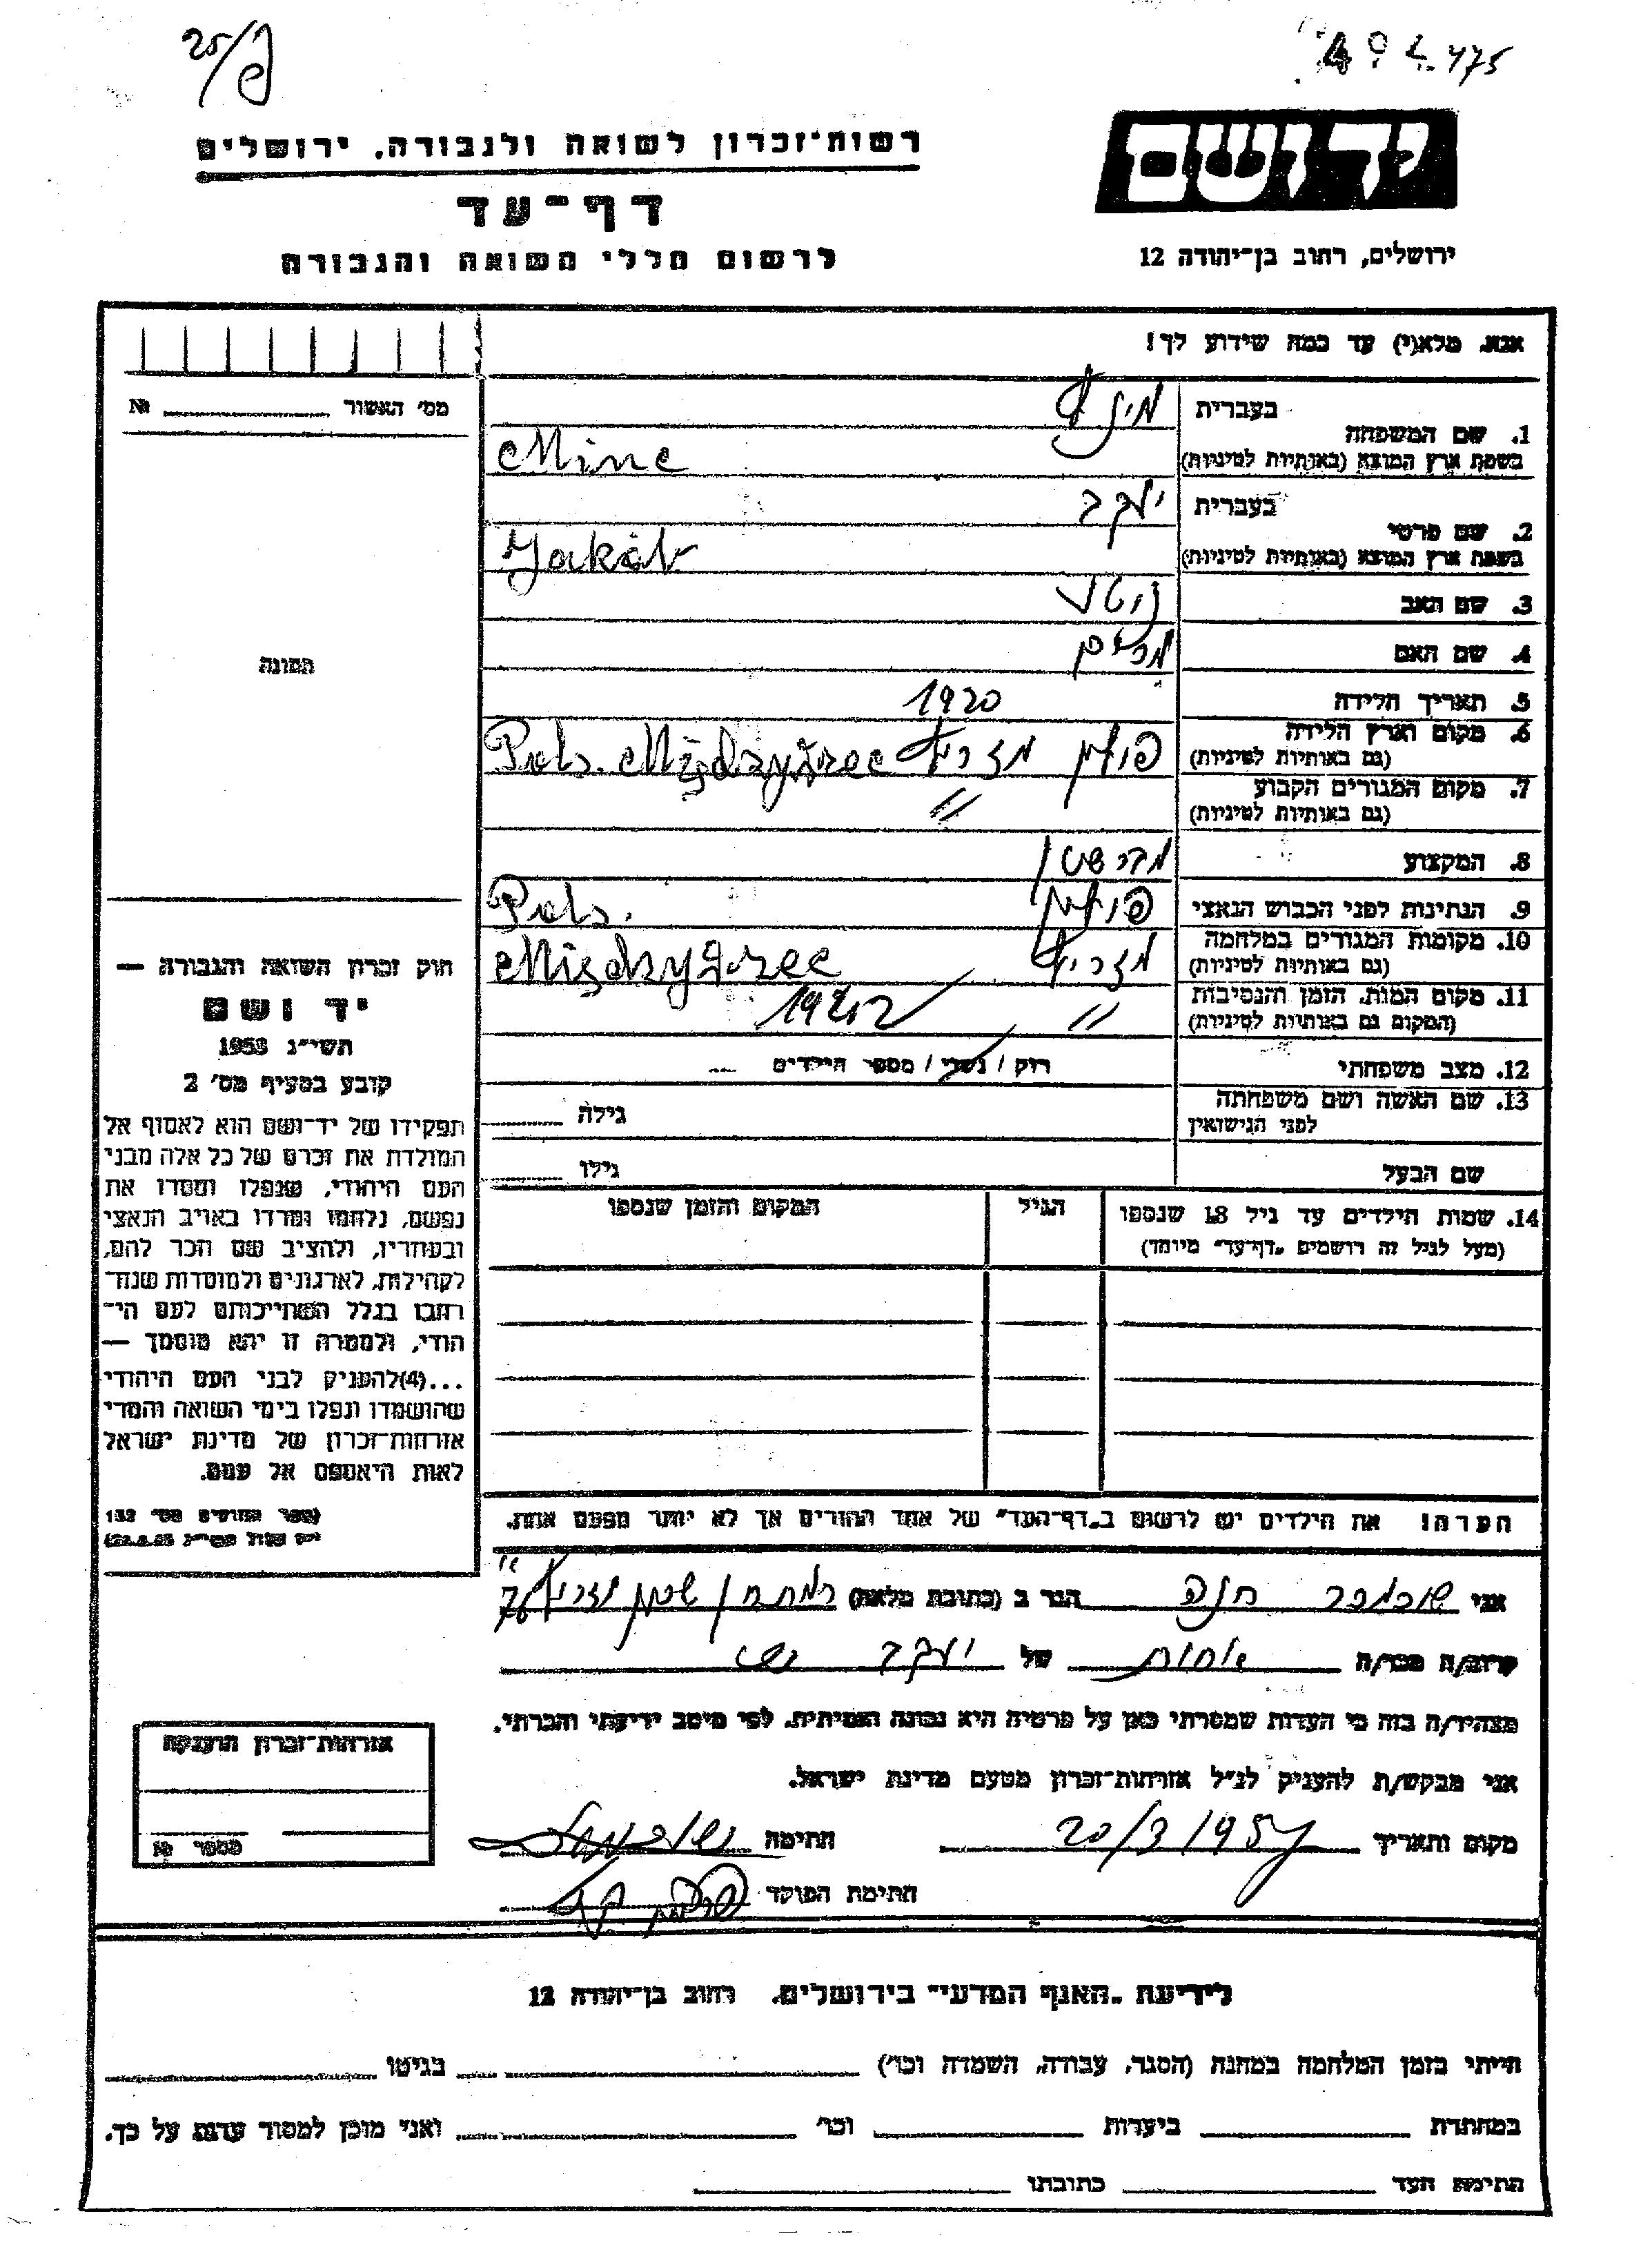 25/
475
יד ושם
רשות־זכרון לשואה ולגבורה, ירושלים
דף־עד
לרשום חללי השואה והגבורה
ירושלים, רחוב בן־יהודה 12
אנא, מלא(י) עד כמה שידוע לך!
מס' האשור № 
1. שם המשפחה
בעברית מינץ
בשפת ארץ המוצא (באותיות לטיניות) Minc
2. שם פרטי
בעברית יעקב
בשפת ארץ המוצא (באותיות לטיניות) Jakób
3. שם האב נוטע
4. שם האם מרים
5. תאריך הלידה 1920
6. מקום וארץ הלידה
(גם באותיות לטיניות) פולין מזריץ Międzyżrec
7. מקום המגורים הקבוע
(גם באותיות לטיניות) "
8. המקצוע
9. הנתינות לפני הכבוש הנאצי פולין
10. מקומות המגורים במלחמה
(גם באותיות לטיניות) מזריץ Międzyżrec
11. מקום המות, הזמן והנסיבות
(המקום גם באותיות לטיניות) " 1942
12. מצב משפחתי רוק / נשוי / מספר הילדים
13. שם האשה ושם משפחתה
לפני הנישואין גילה
שם הבעל גילו
14. שמות הילדים עד גיל 18 שנספו
(מעל לגיל זה רושמים "דף־עד" מיוחד)
הגיל
המקום והזמן שנספו
הערה! את הילדים יש לרשום ב"דף־העד" של אחד ההורים אך לא יותר מפעם אחת.
התמונה
חוק זכרון השואה והגבורה —
יד ושם
תשי״ג 1953
קובע בסעיף מס' 2
תפקידו של יד־ושם הוא לאסוף אל
המולדת את זכרם של כל אלה מבני
העם היהודי, שנפלו ומסרו את
נפשם, נלחמו ומרדו באויב הנאצי
ובעוזריו, ולהציב שם וזכר להם,
לקהילות, לארגונים ולמוסדות שנח־
רבו בגלל השתייכותם לעם הי־
הודי, ולמטרה זו יהא מוסמך —
...(4)להעניק לבני העם היהודי
שהושמדו ונפלו בימי השואה והמרי
אזרחות־זכרון של מדינת ישראל
לאות היאספם אל עמם.
(ספר החוקים מס' 132
אני שוכמכר חנה הגר ב (כתובת מלאה)
קרוב/ה מכר/ה אחות של יעקב
מצהיר/ה בזה כי העדות שמסרתי כאן על פרטיה היא נכונה ואמיתית, לפי מיטב ידיעתי והכרתי.
אני מבקש/ת להעניק לנ״ל אזרחות־זכרון מטעם מדינת ישראל.
מקום ותאריך 20/3 1957 חתימה
חתימת הפוקד
אזרחות־זכרון הוענקה
מספר №
לידיעת "האגף המדעי" בירושלים, רחוב בן־יהודה 12
הייתי בזמן המלחמה במחנה (הסגר, עבודה, השמדה וכו') בגיטו
במחתרת ביערות וכו' ואני מוכן למסור עדות על כך.
חתימת העד כתובתו